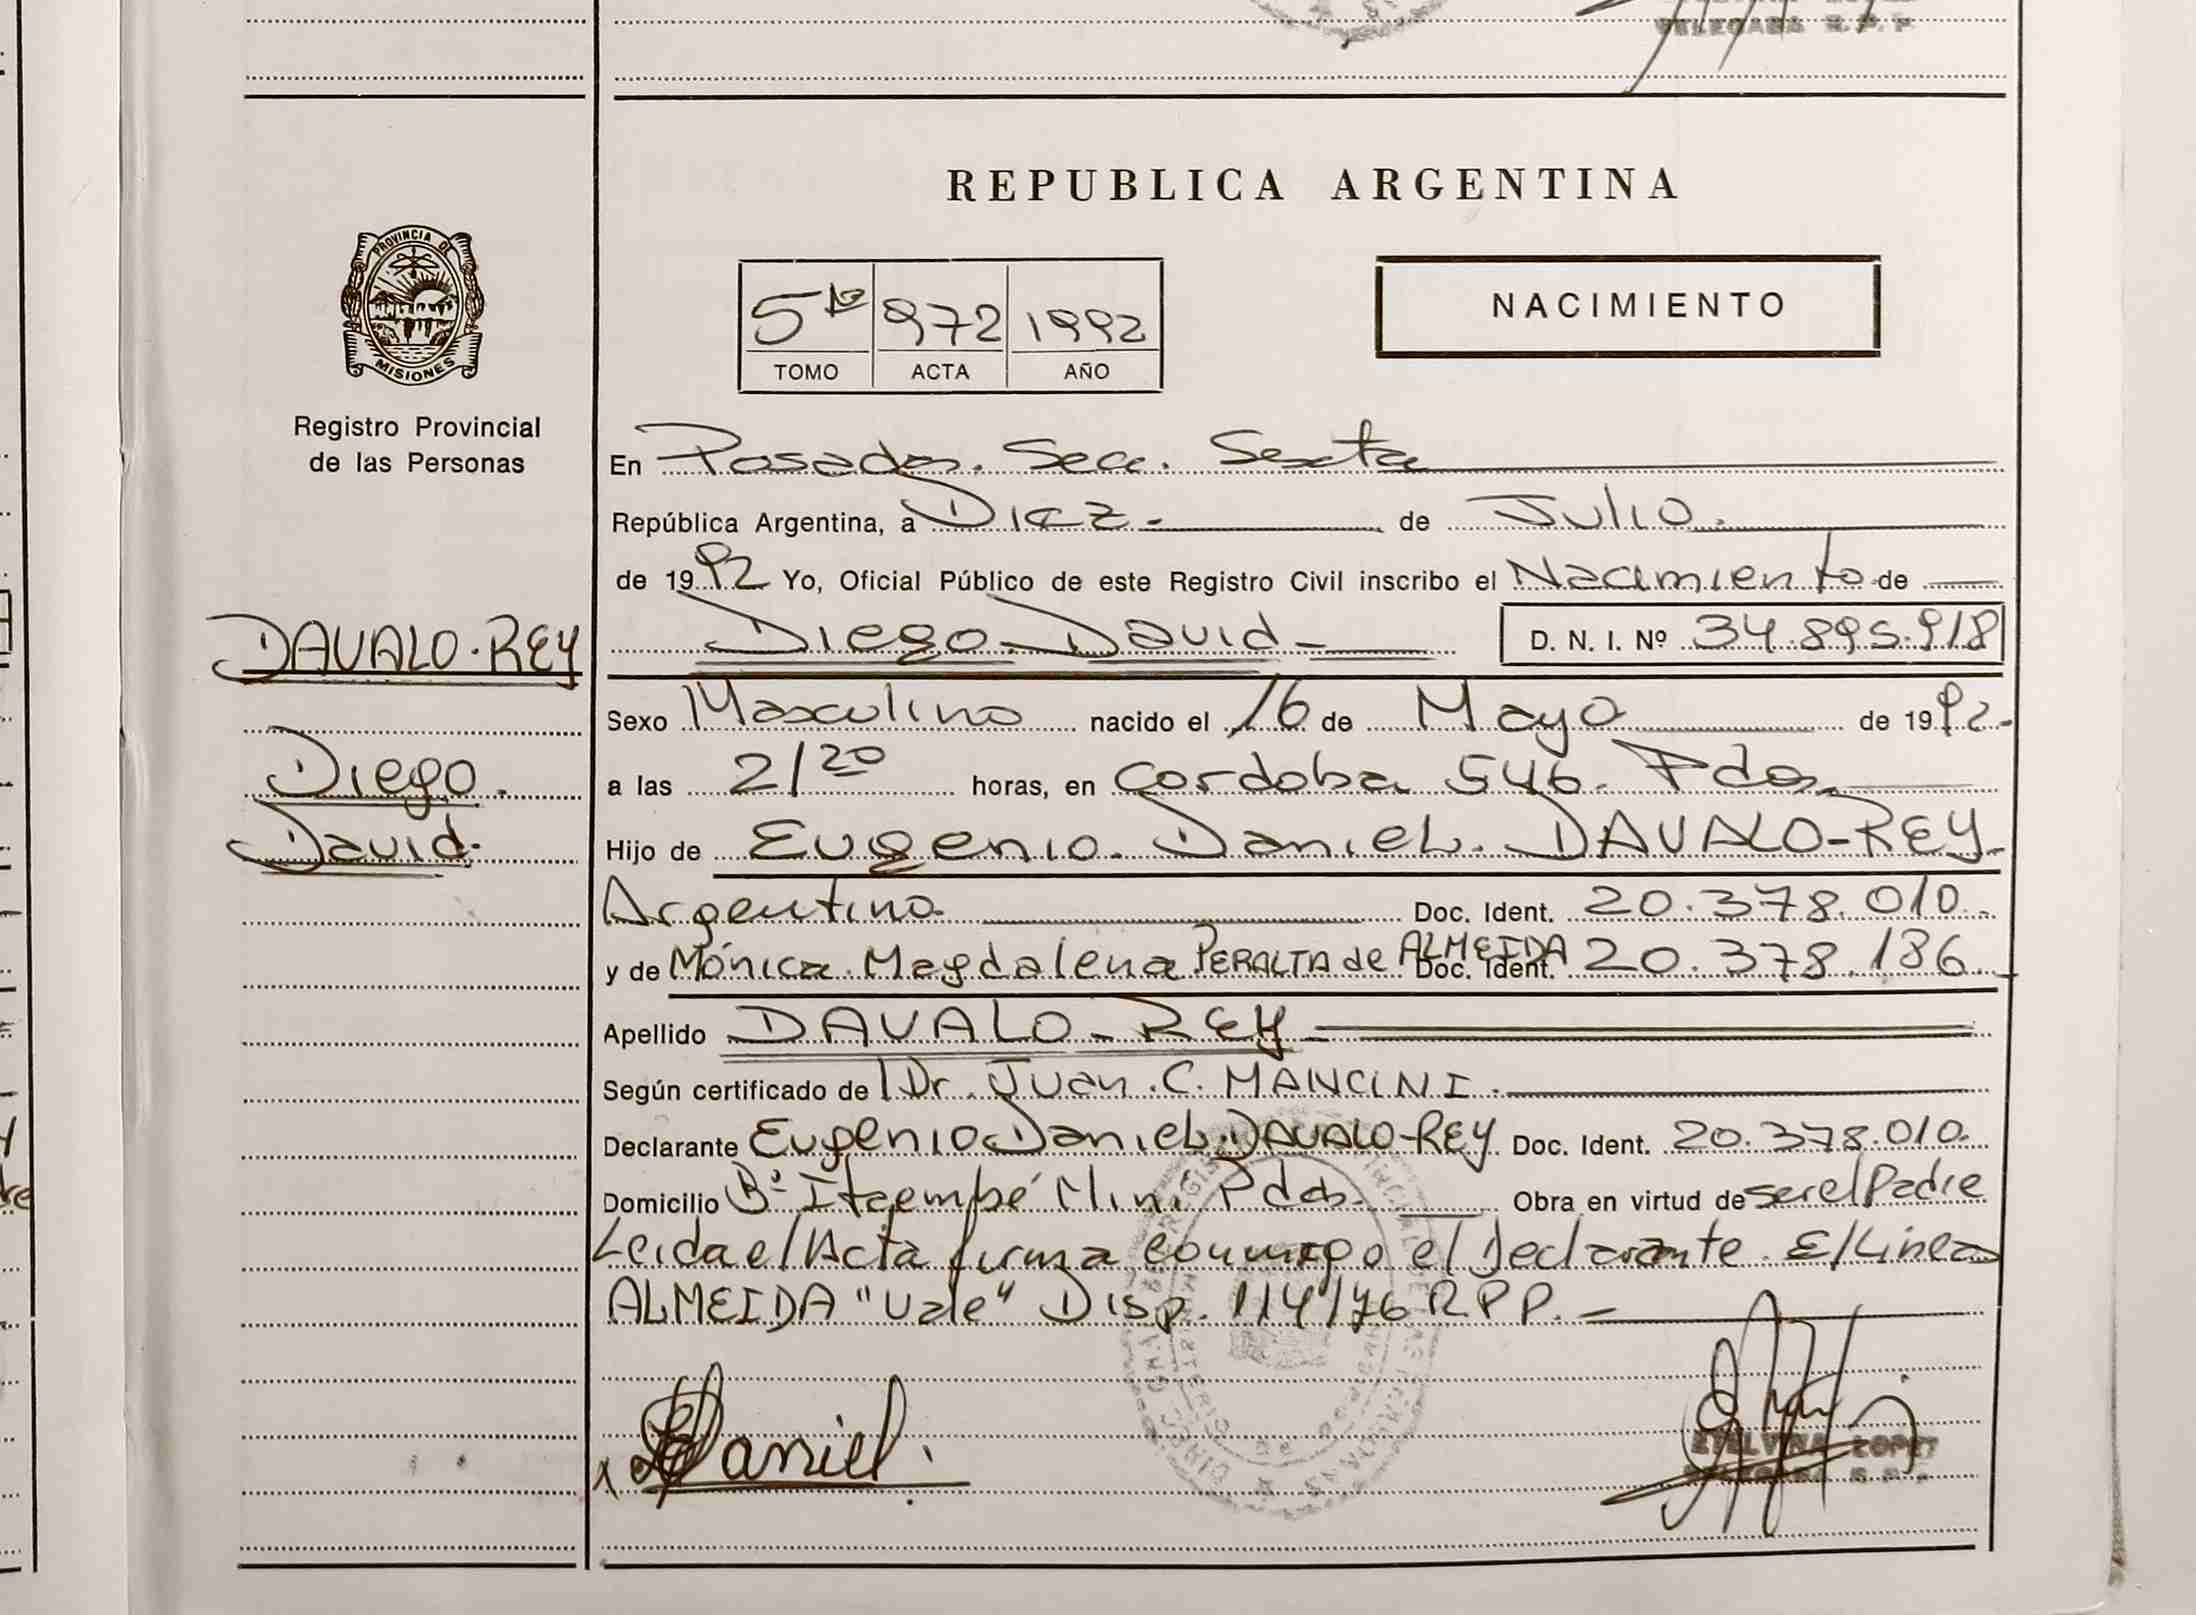 DELEGADA R.P.P.
REPUBLICA ARGENTINA
PROVINCIA DE
MISIONES
Registro Provincial
de las Personas
5to 972 1992
TOMO ACTA AÑO
NACIMIENTO
En Posadas. Secc. Sexta
República Argentina, a Diez.- de Julio.
de 1992 Yo, Oficial Público de este Registro Civil inscribo el Nacimiento de
Diego David - D. N. I. Nº 34.895.918
DAVALO-REY
Diego.
David.
Sexo Masculino nacido el 16 de Mayo de 1992-
a las 21 20 horas, en Cordoba 546. Pdas.
Hijo de Eugenio Daniel DAVALO-REY
Argentino Doc. Ident. 20.378.010.-
y de Mónica Magdalena PERALTA de ALMEIDA Doc. Ident. 20.378.186.-
Apellido DAVALO-REY
Según certificado de Dr. Juan C. MANCINI.
Declarante Eugenio Daniel DAVALO-REY Doc. Ident. 20.378.010.
Domicilio Bº Itaembé Mini Pdas. Obra en virtud de ser el Padre
Leida el Acta firma conmigo el Declarante E/Linea
ALMEIDA "Vale" Disp. 114/76 RPP.-
Daniel.
ETELVINA LOPEZ
DELEGADA R.P.P.